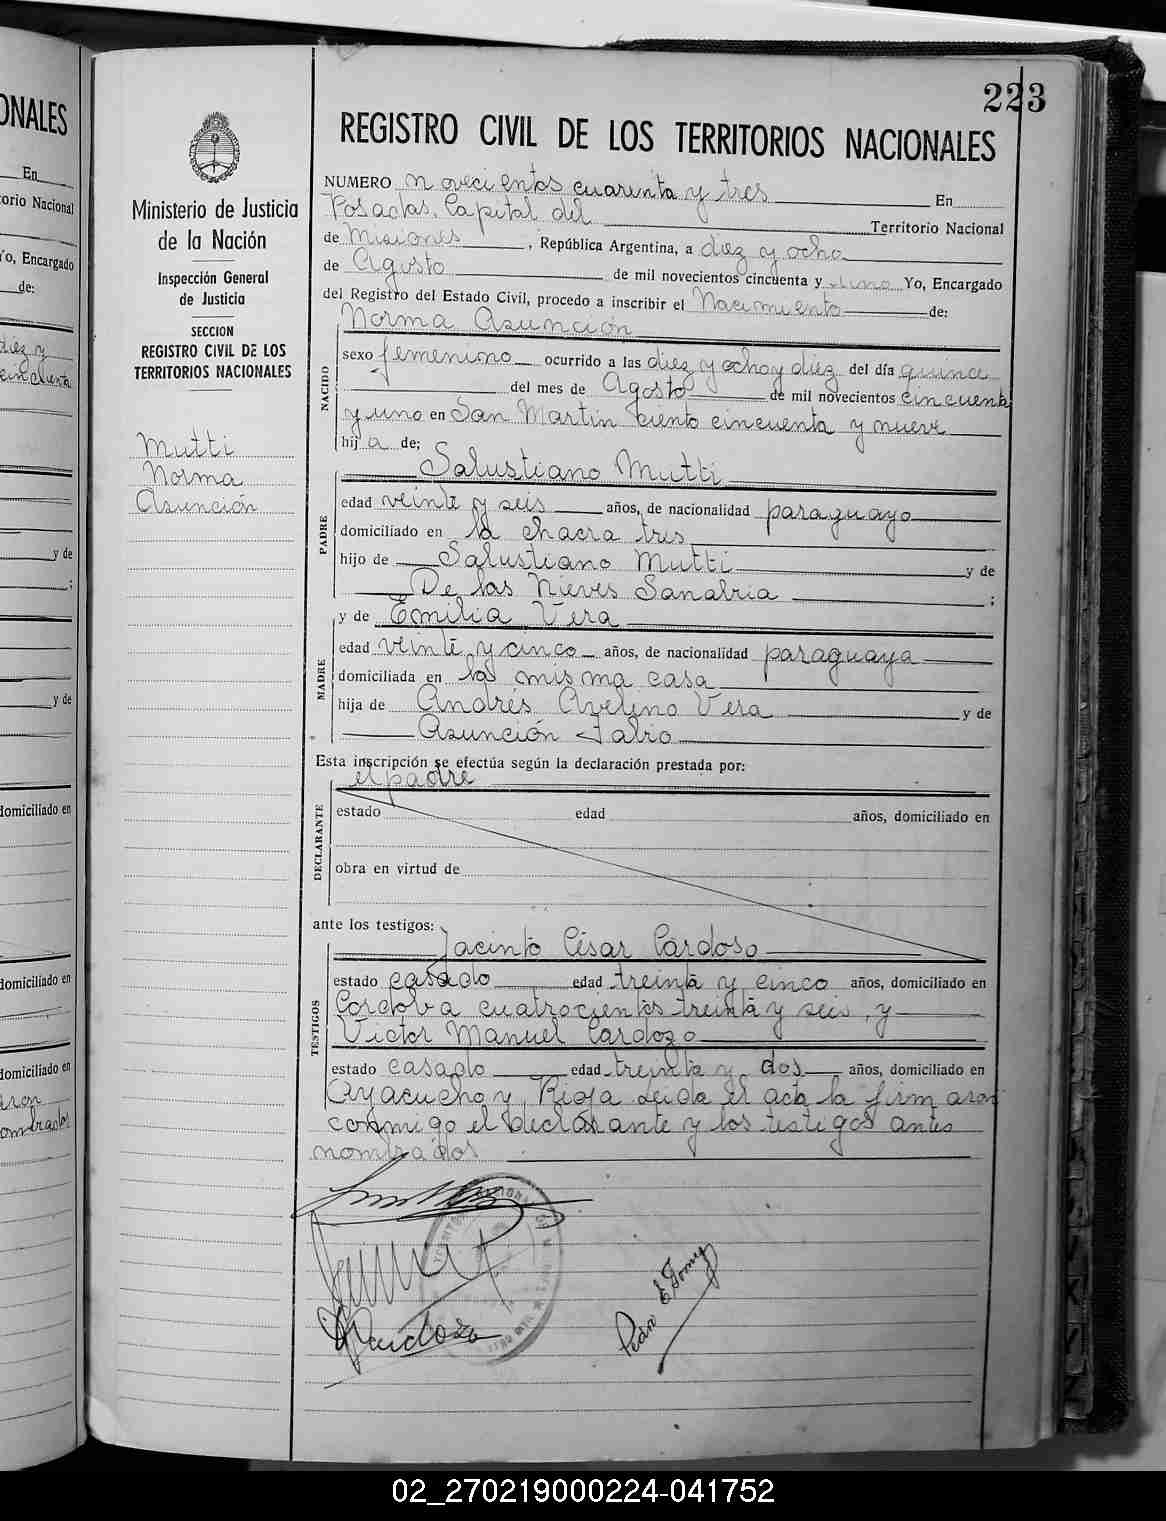 223
REGISTRO CIVIL DE LOS TERRITORIOS NACIONALES
Ministerio de Justicia
de la Nación
Inspección General
de Justicia
SECCION
REGISTRO CIVIL DE LOS
TERRITORIOS NACIONALES
Mutti
Norma
Asunción
NUMERO novecientos cuarenta y tres En
Posadas, Capital del Territorio Nacional
de Misiones, República Argentina, a diez y ocho
de Agosto de mil novecientos cincuenta y uno Yo, Encargado
del Registro del Estado Civil, procedo a inscribir el Nacimiento de:
Norma Asunción
NACIDO
sexo femenino ocurrido a las diez y ocho y diez del día quince
del mes de Agosto de mil novecientos cincuenta
y uno en San Martín ciento cincuenta y nueve
hij a de:
Salustiano Mutti
PADRE
edad veinte y seis años, de nacionalidad paraguayo
domiciliado en la chacra tres
hijo de Salustiano Mutti y de
De las Nieves Sanabria ;
y de Emilia Vera
MADRE
edad veinte y cinco años, de nacionalidad paraguaya
domiciliada en la misma casa
hija de Andrés Avelino Vera y de
Asunción
Esta inscripción se efectúa según la declaración prestada por:
el padre
DECLARANTE
estado edad años, domiciliado en
obra en virtud de
ante los testigos:
Jacinto César Cardoso
TESTIGOS
estado casado edad treinta y cinco años, domiciliado en
Cordoba cuatrocientos treinta y seis, y
Victor Manuel Cardozo
estado casado edad treinta y dos años, domiciliado en
Ayacucho y Rioja Leida el acta la firmaron
conmigo el declarante y los testigos antes
nombrados
Cardozo
ONALES
En
orio Nacional
o, Encargado
de:
diez y
cincuenta
y de
;
y de
domiciliado en
domiciliado en
domiciliado en
aron
ombrados
02_270219000224-041752